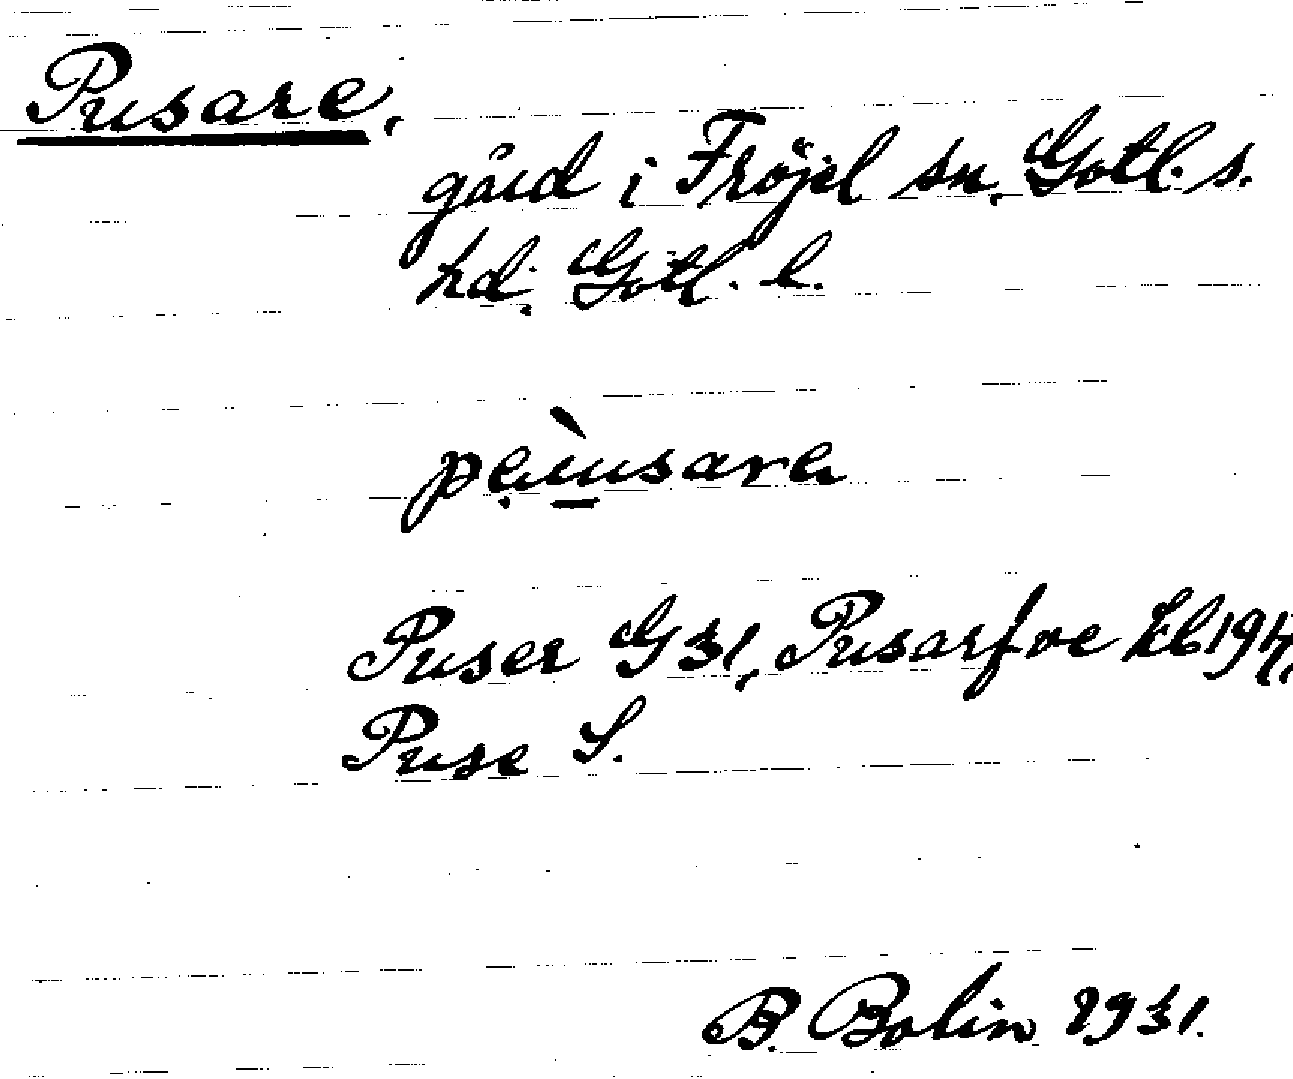 Pusare,
gård i Fröjel sn, Gotl. s.
hd. Gotl. l.
Puser G 31, Pusarfve Kb
Puse S.
B. Bolin 1931.